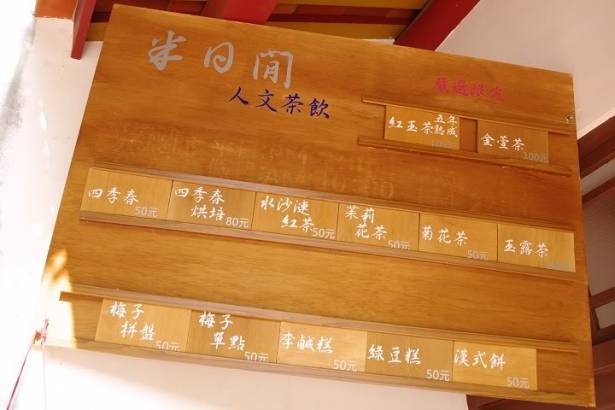 半日閒
人文茶飲
嚴選限定
紅玉茶 五年熟成
金萱茶
100元
四季春
50元
四季春
烘培
80元
水沙漣
紅茶
50元
茉莉
花茶
50元
菊花茶
50元
玉露茶
梅子
拼盤
50元
梅子
單點
50元
李鹹糕
50元
綠豆糕
50元
漢式餅
50元